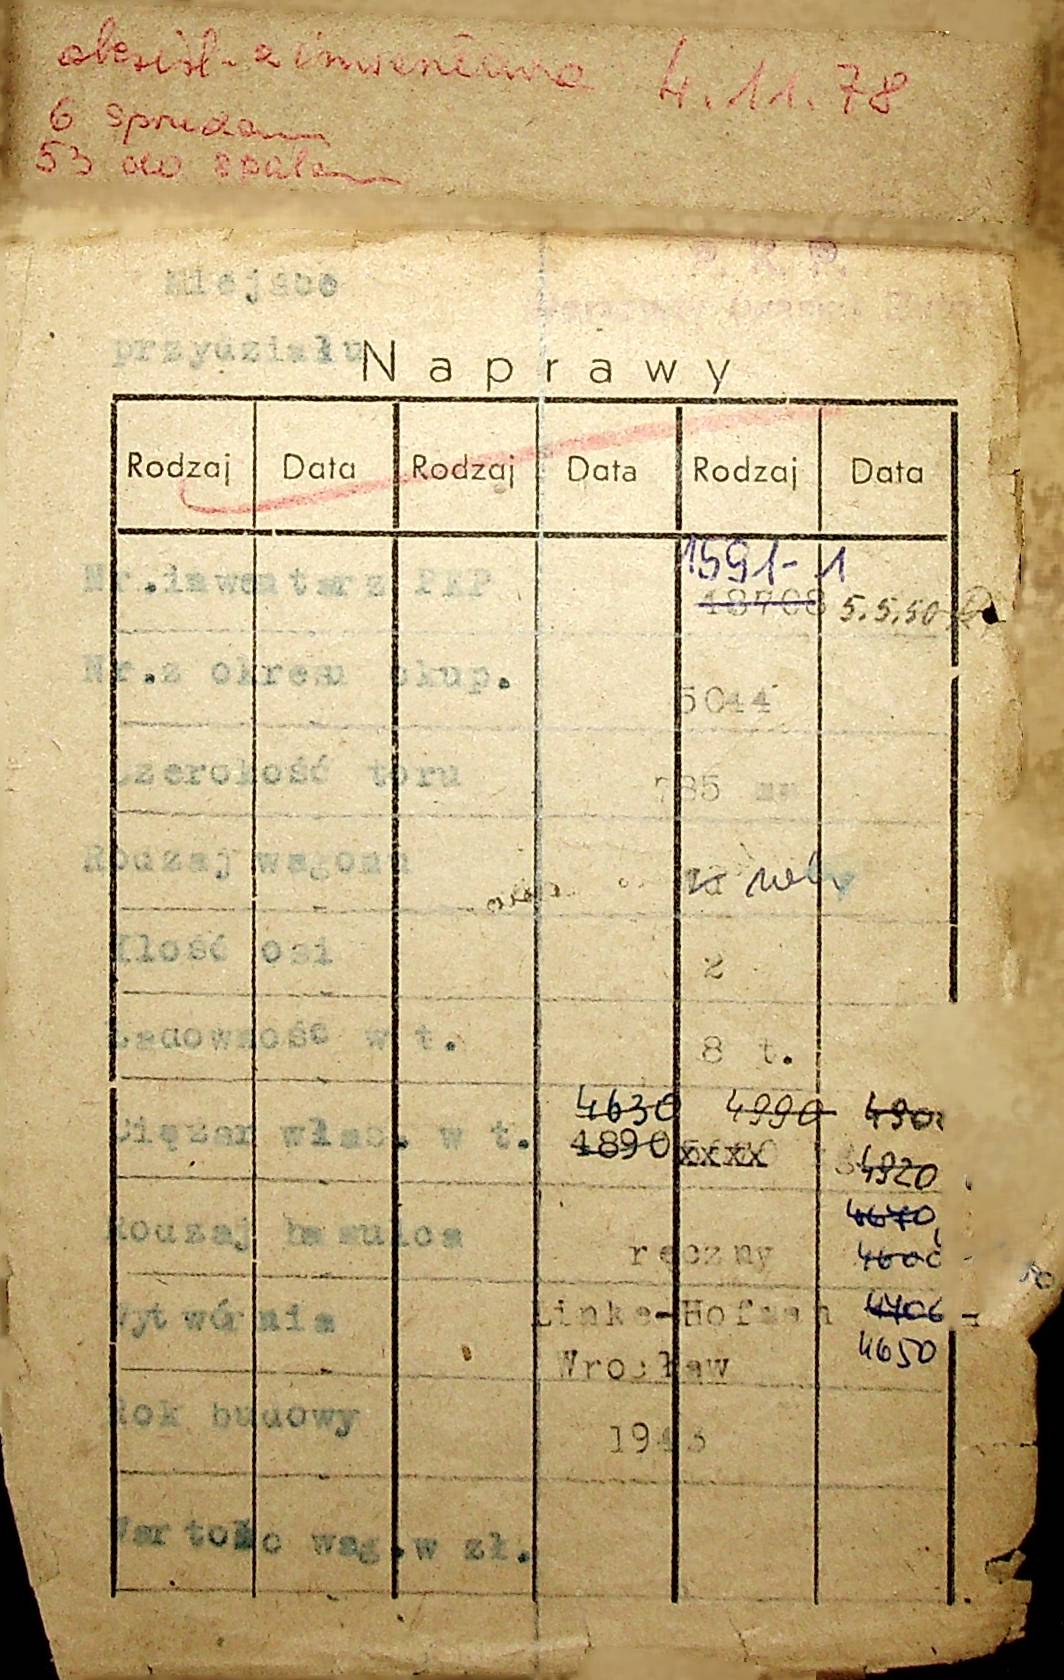 4.11.78
53 do
Miejsce
P. K. P.
przydziału
Naprawy
Rodzaj Data Rodzaj Data Rodzaj Data
1591-1
Nr.inwentarz PKP 18708 5.5.50
Nr.z okresu okup. 5044
Szerokość toru 785 mm
Rodzaj wagonu
Ilość osi 2
Ładowność w t. 8 t.
4630 4990
Ciężar włas. w t. 4890 xxxx 4820
4670
Rodzaj hamulca ręczny 4600
Wytwórnia Linke-Hofman 4706
Wrocław 4650
Rok budowy 1943
Wartość wag.w zł.